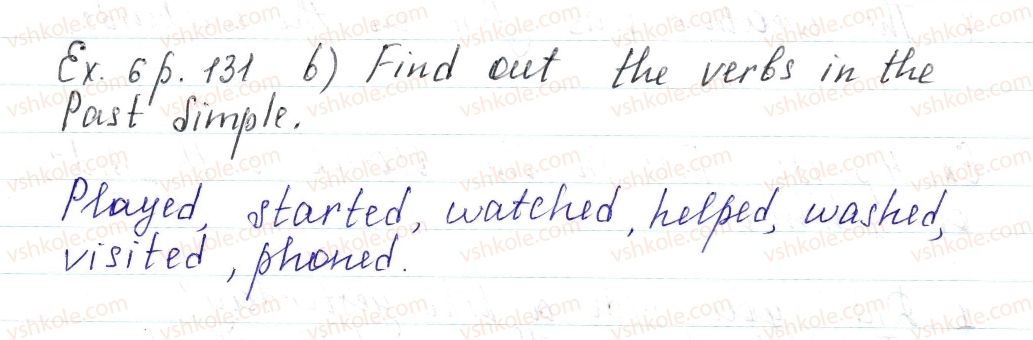 Ex. 6 p. 131 b) Find out the verbs in the
Past Simple.
Played, started, watched, helped, washed,
visited, phoned.